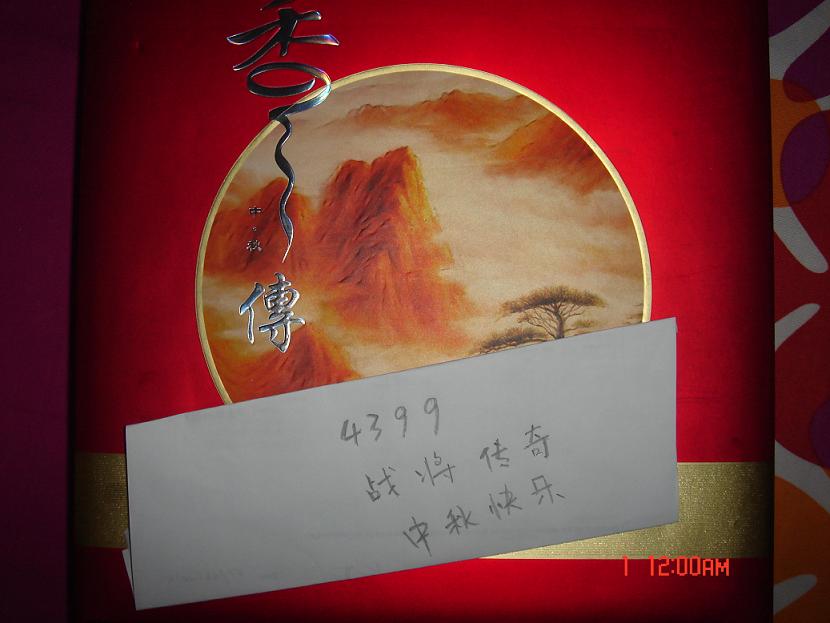 香
中·秋
傳
4399
战将传奇
中秋快乐
1 12:00AM